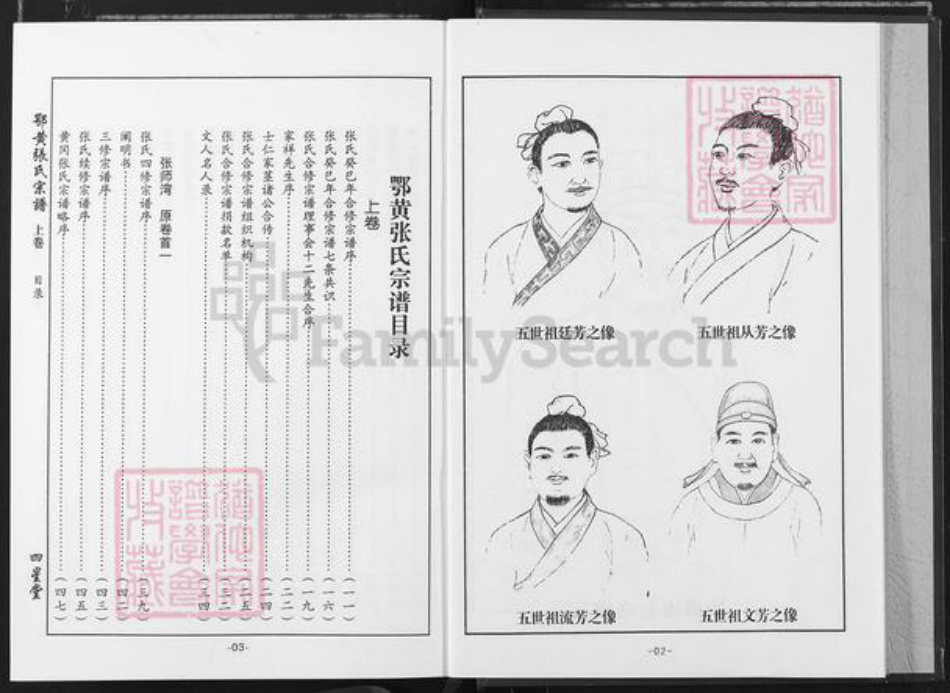 五世祖从芳之像
五世祖廷芳之像
五世祖文芳之像
五世祖流芳之像
-02-
鄂黄张氏宗谱目录
上卷
张氏癸巳年合修宗谱序(一一)
张氏癸巳年合修宗谱七条共识(一六)
张氏合修宗谱理事会十二先生合序(一九)
家祥先生序(二二)
士仁家茎诸公合传(二四)
张氏合修宗谱组织机构(二五)
张氏合修宗谱捐款名单(三二)
文人名人录(三四)
张师湾 原卷首一
张氏四修宗谱序(三九)
阐明书(四二)
三修宗谱序(四三)
张氏续修宗谱序(四五)
黄冈张氏宗谱略序(四七)
鄂黄張氏宗譜 上卷 目录
四星堂
-03-
FamilySearch